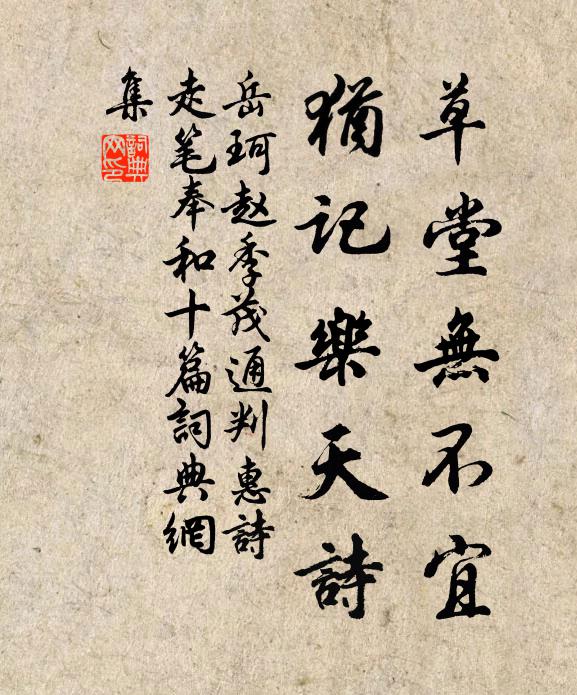 草堂無不宜
猶記樂天詩
岳珂赵季茂通判惠詩
走笔奉和十篇詞典網
集
詞典網印